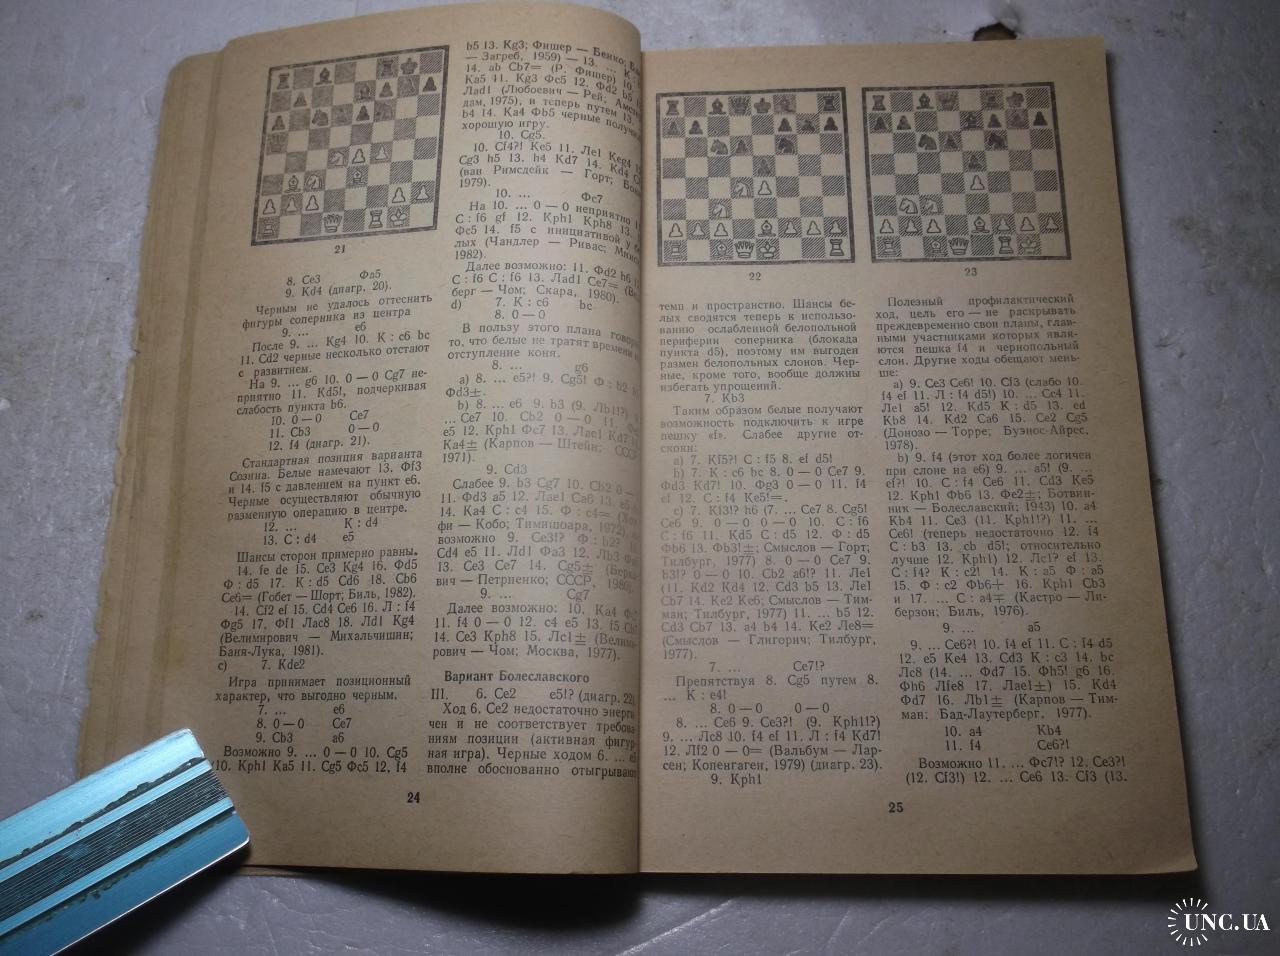 21
8. Се3 Фа5
9. Кd4 (диагр. 20).
Черным не удалось оттеснить
фигуры соперника из центра
9. ... е6
После 9. ... Кg4 10. К : с6 bc
11. Cd2 черные несколько отстают
с развитием.
На 9. ... g6 10. 0—0 Cg7 не-
приятно 11. Kd5!, подчеркивая
слабость пункта b6.
10. 0—0 Се7
11. Cb3 0—0
12. f4 (диагр. 21).
Стандартная позиция варианта
Созина. Белые намечают 13. Фf3
и 14. f5 с давлением на пункт е6.
Черные осуществляют обычную
разменную операцию в центре.
12. ... К : d4
13. С : d4 е5
Шансы сторон примерно равны.
14. fe de 15. Се3 Kg4 16. Фd5
Ф : d5 17. К : d5 Cd6 18. Cb6
Се6= (Гобет — Шорт; Биль, 1982).
14. Cf2 ef 15. Cd4 Се6 16. Л : f4
Фg5 17. Фf1 Лас8 18. Лd1 Кg4
(Велимирович — Михальчишин;
Баня-Лука, 1981).
с) 7. Kde2
Игра принимает позиционный
характер, что выгодно черным.
7. ... е6
8. 0—0 Се7
9. Cb3 а6
Возможно 9. ... 0—0 10. Cg5
(10. Kph1 Ka5 11. Cg5 Фс5 12. f4
b5 13. Kg3; Фишер — Бенко;
— Загреб, 1959) — 13. ...
14. ab Cb7= (Р. Фишер) 10.
Ка5 11. Kg3 Фс5 12. Фd2 b5
Лаd1 (Любоевич — Рей; Амстер-
дам, 1975), и теперь путем 13.
b4 14. Ка4 Фb5 черные получ
хорошую игру.
10. Cg5.
10. Cf4?! Ke5 11. Ле1 Keg4
Cg3 h5 13. h4 Kd7 14. Kd4
(ван Римсдейк — Горт;
1979).
10. ... Фс7
На 10. ... 0—0 неприятно
С : f6 gf 12. Kph1 Kph8 13.
Фс5 14. f5 с инициативой у бе-
лых (Чандлер — Ривас;
1982).
Далее возможно: 11. Фd2 h6
С : f6 С : f6 13. Лаd1 Се7=
берг — Чом; Скара, 1980).
d) 7. К : с6 bc
8. 0—0
В пользу этого плана говорит
то, что белые не тратят времени
отступление коня.
8. ... g6
a) 8. ... е5?! 9. Cg5! Ф : b2
Фd3±.
b) 8. ... е6 9. b3 (9.
... Се7 10. Cb2 0—0 11.
е5 12. Kph1 Фс7 13. Лае1 Kd7
Ка4± (Карпов — Штейн; СССР,
1971).
9. Cd3
Слабее 9. b3 Cg7 10. Cb2 0—0
11. Фd3 а5 12. Лае1 Са6 13. е5
14. Ка4 С : с4 15. Ф : с4=
фи — Кобо; Тимишоара, 1972),
возможно 9. Се3!? Ф : b2?
Cd4 е5 11. Лd1 Фа3 12. Лb3
13. Се3 Се7 14. Cg5±
вич — Петриенко; СССР, 1980).
9. ... Cg7
Далее возможно: 10. Ка4
11. f4 0—0 12. с4 е5 13. f5
14. Се3 Kph8 15. Лс1± (Велими-
рович — Чом; Москва, 1977).
Вариант Болеславского
III. 6. Се2 е5!? (диагр. 22).
Ход 6. Се2 недостаточно энерги-
чен и не соответствует требова-
ниям позиции (активная фигур-
ная игра). Черные ходом 6. ... е5
вполне обоснованно отыгрывают
24
22
темп и пространство. Шансы бе-
лых сводятся теперь к использо-
ванию ослабленной белопольной
периферии соперника (блокада
пункта d5), поэтому им выгоден
размен белопольных слонов. Чер-
ные, кроме того, вообще должны
избегать упрощений.
7. Kb3
Таким образом белые получают
возможность подключить к игре
пешку «f». Слабее другие от-
скоки:
a) 7. Kf5?! С : f5 8. ef d5!
b) 7. К : с6 bc 8. 0—0 Се7 9.
Фd3 Kd7! 10. Фg3 0—0 11. f4
ef 12. С : f4 Ке5!=.
с) 7. Kf3!? h6 (7. ... Се7 8. Cg5!
Се6 9. 0—0 0—0 10. С : f6
С : f6 11. Kd5 С : d5 12. Ф : d5
Фb6 13. Фb3!±; Смыслов — Горт;
Тилбург, 1977) 8. 0—0 Се7 9.
b3!? 0—0 10. Cb2 а6!? 11. Ле1
(11. Kd2 Kd4 12. Cd3 b5 13. Ле1
Cb7 14. Ке2 Ке6; Смыслов — Тим-
ман; Тилбург, 1977) 11. ... b5 12.
Cd3 Cb7 13. а4 b4 14. Ке2 Ле8=
(Смыслов — Глигорич; Тилбург,
1977).
7. ... Се7!?
Препятствуя 8. Cg5 путем 8.
... К : е4!
8. 0—0 0—0
8. ... Се6 9. Се3?! (9. Kph1!?)
9. ... Лс8 10. f4 ef 11. Л : f4 Kd7!
12. Лf2 0—0= (Вальбум — Лар-
сен; Копенгаген, 1979) (диагр. 23).
9. Kph1
23
Полезный профилактический
ход, цель его — не раскрывать
преждевременно свои планы, глав-
ными участниками которых явля-
ются пешка f4 и чернопольный
слон. Другие ходы обещают мень-
ше:
a) 9. Се3 Се6! 10. Cf3 (слабо 10.
f4 ef 11. Л : f4 d5!) 10. ... Сс4 11.
Ле1 а5! 12. Kd5 К : d5 13. ed
Kb8 14. Kd2 Са6 15. Се2 Cg5
(Донозо — Торре; Буэнос-Айрес,
1978).
b) 9. f4 (этот ход более логичен
при слоне на е6) 9. ... а5! (9. ...
ef?! 10. С : f4 Се6 11. Cd3 Ке5
12. Kph1 Фb6 13. Фе2±; Ботвин-
ник — Болеславский; 1943) 10. а4
Kb4 11. Се3 (11. Kph1!?) 11. ...
Се6! (теперь недостаточно 12. f4
С : b3 13. cb d5!; относительно
лучше 12. Kph1) 12. Лс1? ef 13.
С : f4? К : с2! 14. К : а5 Ф : а5
15. Ф : с2 Фb6+ 16. Kph1 Cb3
и 17. ... С : а4∓ (Кастро — Ли-
берзон; Биль, 1976).
9. ... а5
9. ... Се6?! 10. f4 ef 11. С : f4 d5
12. е5 Ке4 13. Cd3 К : с3 14. bc
Лс8 (14. ... Фd7 15. Фh5! g6 16.
Фh6 Лfe8 17. Лае1±) 15. Kd4
Фd7 16. Лb1± (Карпов — Тим-
ман; Бад-Лаутерберг, 1977).
10. а4 Kb4
11. f4 Се6?!
Возможно 11. ... Фс7!? 12. Се3?!
(12. Cf3!) 12. ... Се6 13. Cf3 (13.
25
UNC.UA